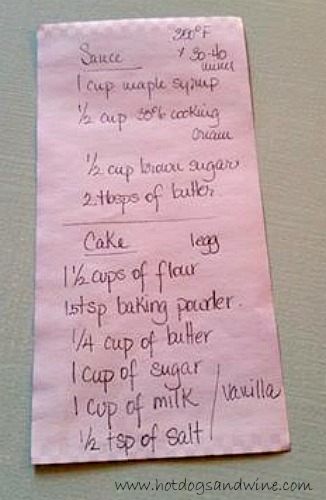 350°F
Sauce x 30-40
mins
1 cup maple syrup
1/2 cup 35% cooking
cream
1/2 cup brown sugar
2 tbsps of butter
Cake 1 egg
1 1/2 cups of flour
1.5 tsp baking powder.
1/4 cup of butter
1 cup of sugar
1 cup of milk / vanilla
1/2 tsp of salt
www.hotdogsandwine.com